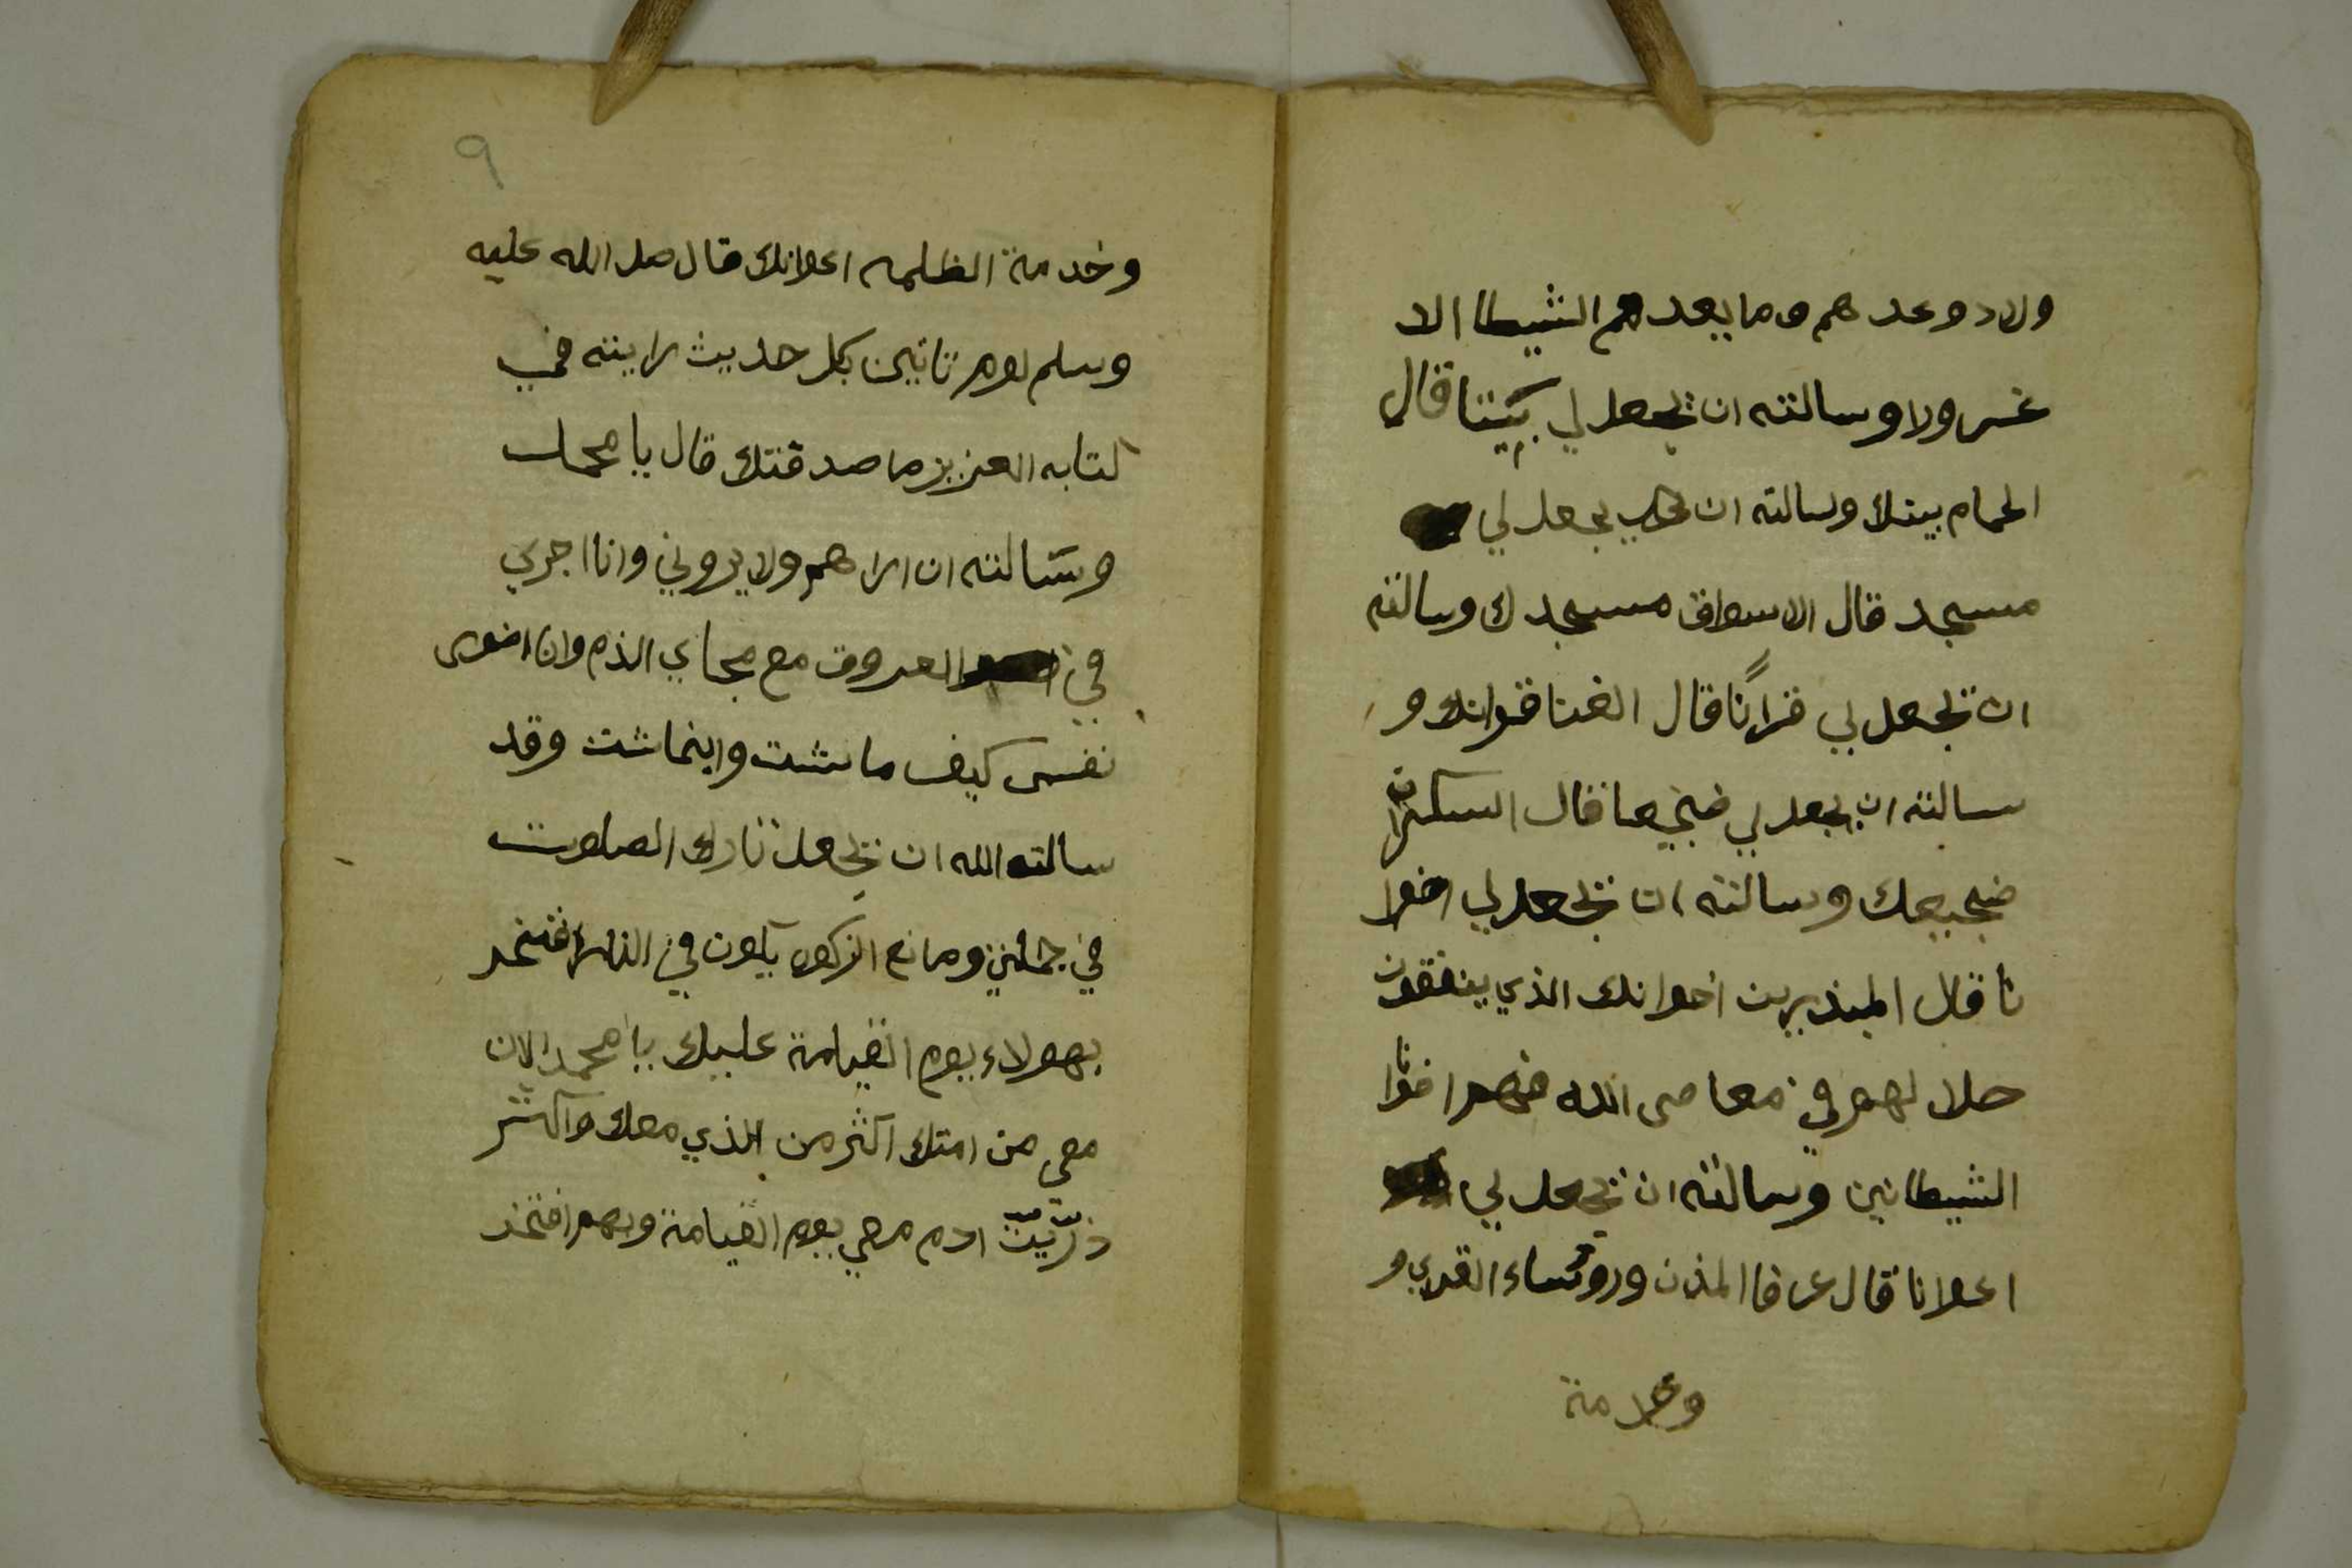 ولاد وعدهم وما يعدهم الشيطا الا
غرولا وسالته ان تجعل لي بيتا قال
الحمام بيتك وسالته ان يجعل لي
مسجد قال الاسواق مسجدك وسالته
ان تجعل لي قراًنا قال الغنا قرانك و
سالته ان يجعل لي ضجيعا قال السكران
ضجيعك وسالته ان تجعل لي اخوا
نا قال المبذرين اخوانك الذي ينفقون
حلا لهم في معاصى الله فهم اخوانا
الشيطانين وسالته ان تجعل لي
اعوانا قال عرفا المدن وروساء القرى و
وخدمة
٩
وخدمة الظلمه اعوانك قال صلى الله عليه
وسلم لوم تاتين بكل حديث رايته في
كتابه العزيز ما صدقتك قال يا محمد
وسالته ان اراهم ولا يروني وانا اجري
في العروق مع مجاي الدم وان اضوى
نفسى كيف ما شت واينما شت وقد
سالته الله ان تجعل تارك الصلوت
في جملتي ومانع الزكوه يكون في النار افتخر
بهولاء يوم القيامة عليك يا محمد الان
معى من امتك اكثر من الذي معك واكثر
ذريت ادم معي يوم القيامة وبهم افتخر